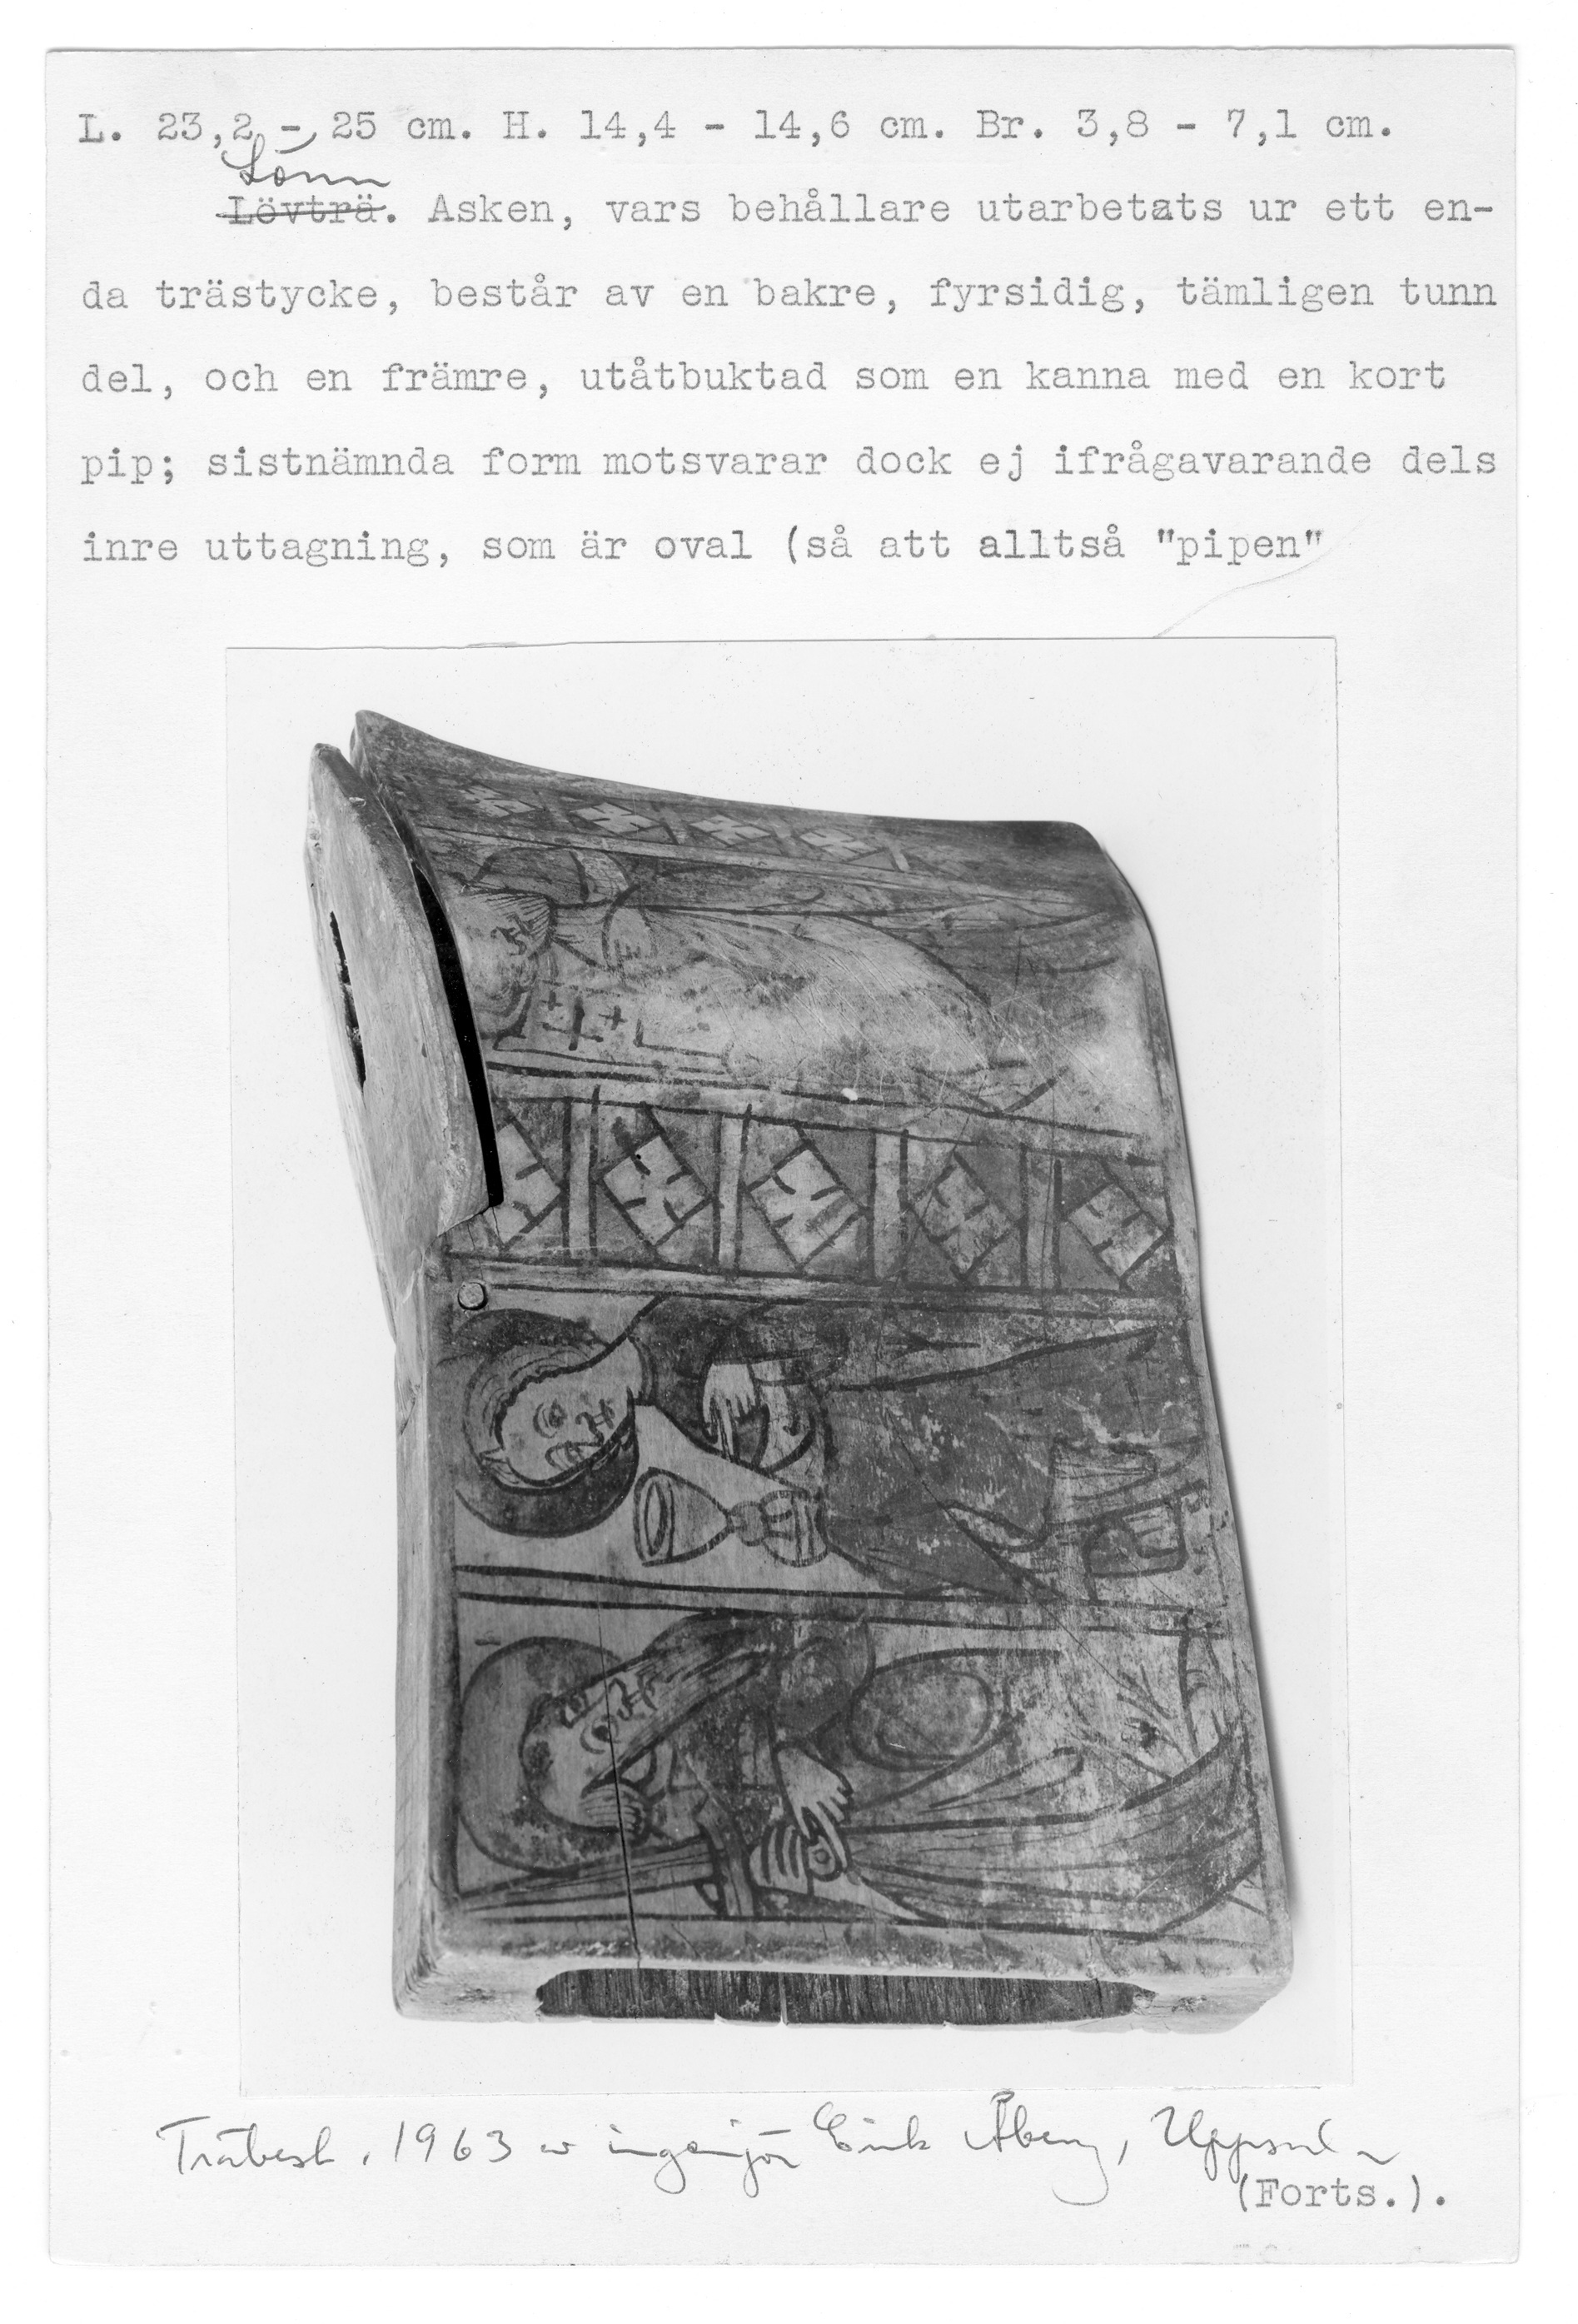 L. 23,2 - 25 cm. H. 14,4 - 14,6 cm. Br. 3,8 - 7,1 cm.
Lönn
Lövträ. Asken, vars behållare utarbetats ur ett en-
da trästycke, består av en bakre, fyrsidig, tämligen tunn
del, och en främre, utåtbuktad som en kanna med en kort
pip; sistnämnda form motsvarar dock ej ifrågavarande dels
inre uttagning, som är oval (så att alltså "pipen"
Träbest. 1963 av ingenjör Erik Åberg, Uppsala
(Forts.).